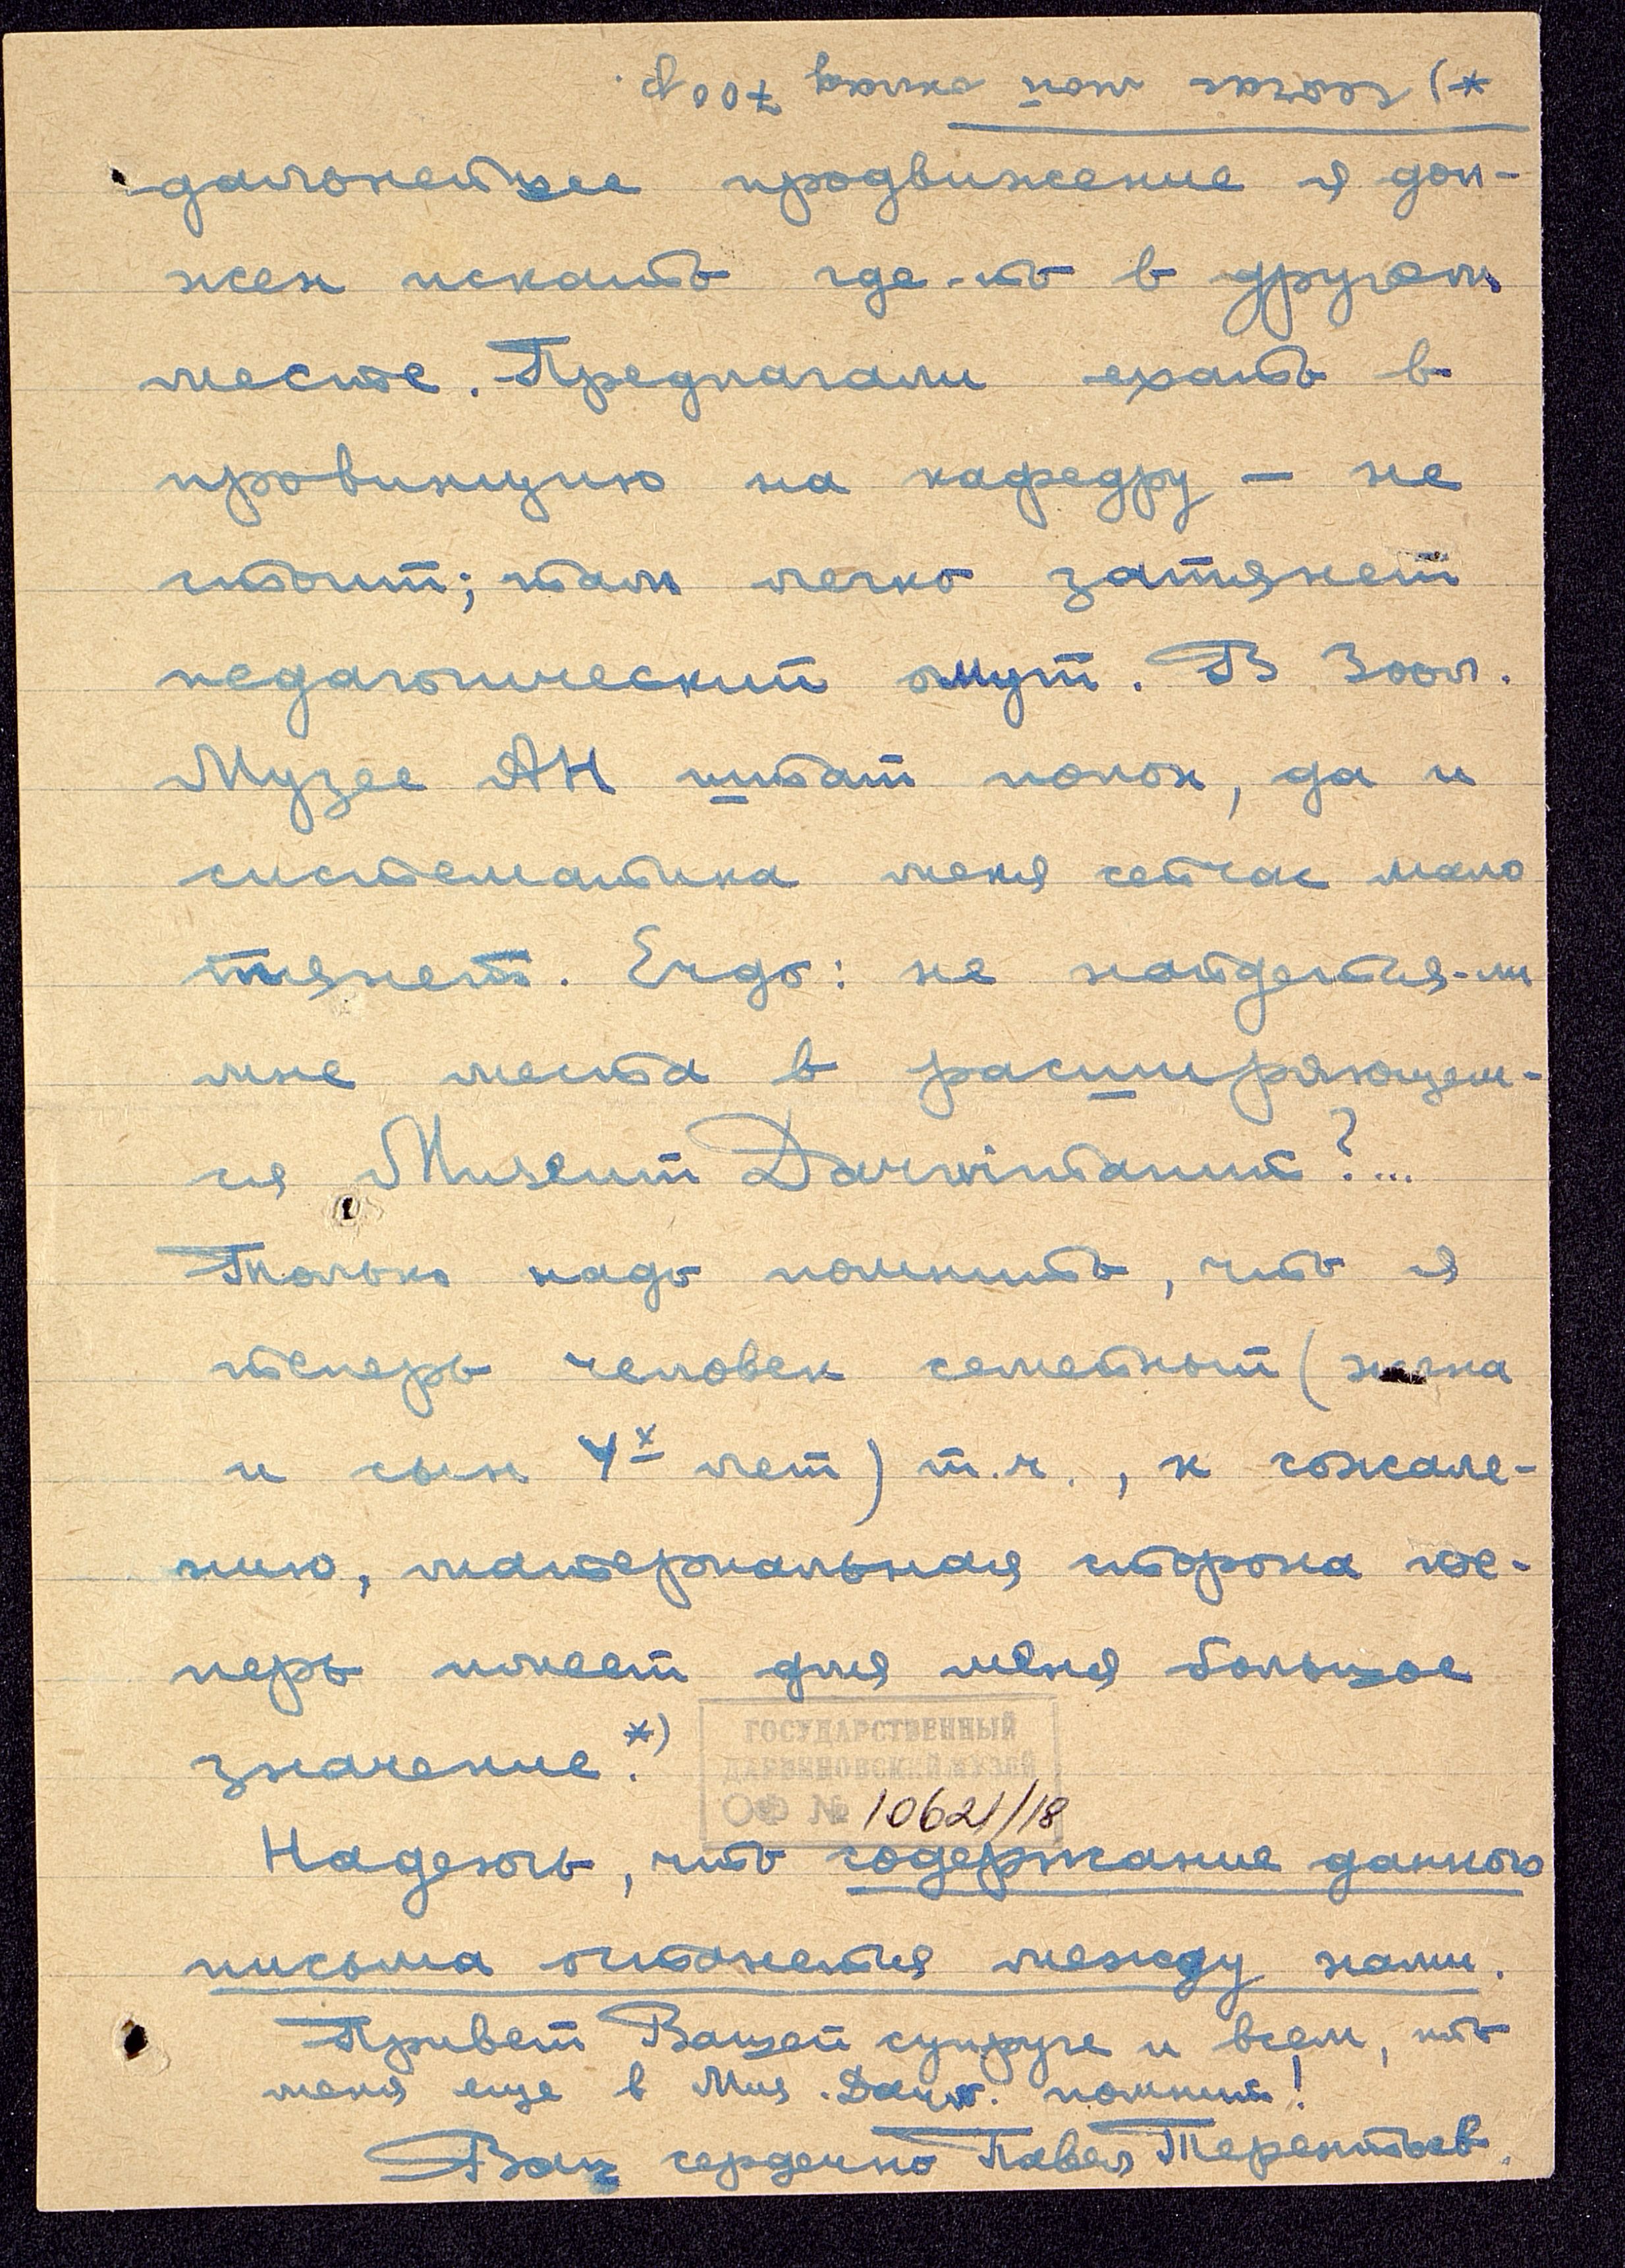 *) сейчас мой оклад 700 р.
дальнейшее продвижение я дол-
жен искать где-то в другом
месте. Предлагали ехать в
провинцию на кафедру — не
стоит; там легко затянет
педагогический омут. В Зоол.
Музее АН штат полон, да и
систематика меня сейчас мало
тянет. Ergo: не найдется-ли
мне места в расширяющем-
ся Museum Darwinianum?...
Только надо помнить, что я
теперь человек семейный (жена
и сын 4х лет) т.ч., к сожале-
нию, материальная сторона те-
перь имеет для меня большое
значение.*)
ГОСУДАРСТВЕННЫЙ
ДАРВИНОВСКИЙ МУЗЕЙ
ОФ № 10621/18
Надеюсь, что содержание данного
письма останется между нами.
Привет Вашей супруге и всем, кто
меня еще в Mus. Darw. помнит!
Ваш сердечно Павел Терентьев.